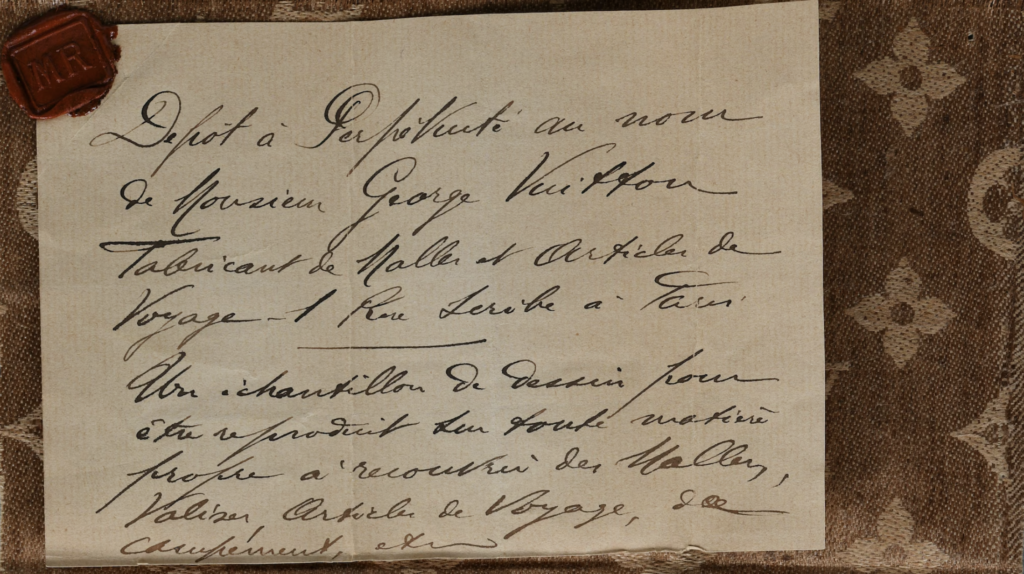 MR
Depôt à Perpétuité au nom
de Monsieur George Vuitton
Fabricant de Malles et Articles de
Voyage - 1 Rue Scribe à Paris
Un échantillon de dessin pour
être reproduit sur toute matière
propre à recouvrir des Malles,
Valises, Articles de Voyage, de
campement, etc